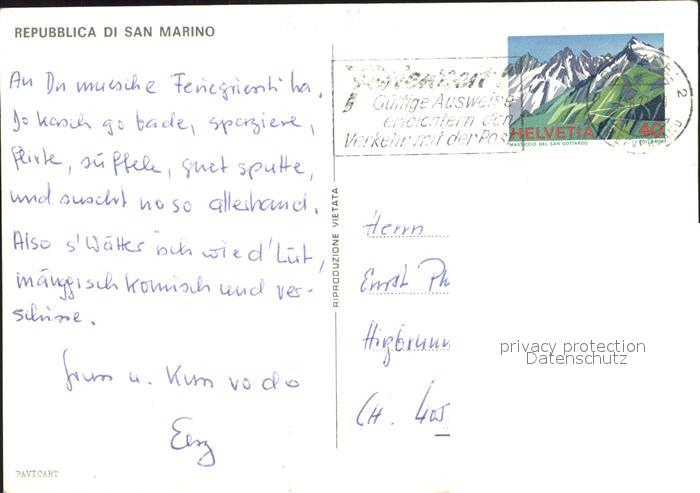 REPUBBLICA DI SAN MARINO
Au Du muesche Feriegrüessli ha.
Do kasch go bade, spaziere,
flirte, süffele, guet spütte,
und suscht no so allerhand.
Also s'Wätter isch wie d'Lüt,
mänggisch komisch und ver-
schisse.
Gruss u. Kuss vo do
PAVICART
RIPRODUZIONE VIETATA
Ferienzeit
Gültige Ausweise
erleichtern den
Verkehr mit der Post
HELVETIA 40
MASSICCIO DEL SAN GOTTARDO
Herrn
Ernst Ph
CH. 405
privacy protection
Datenschutz